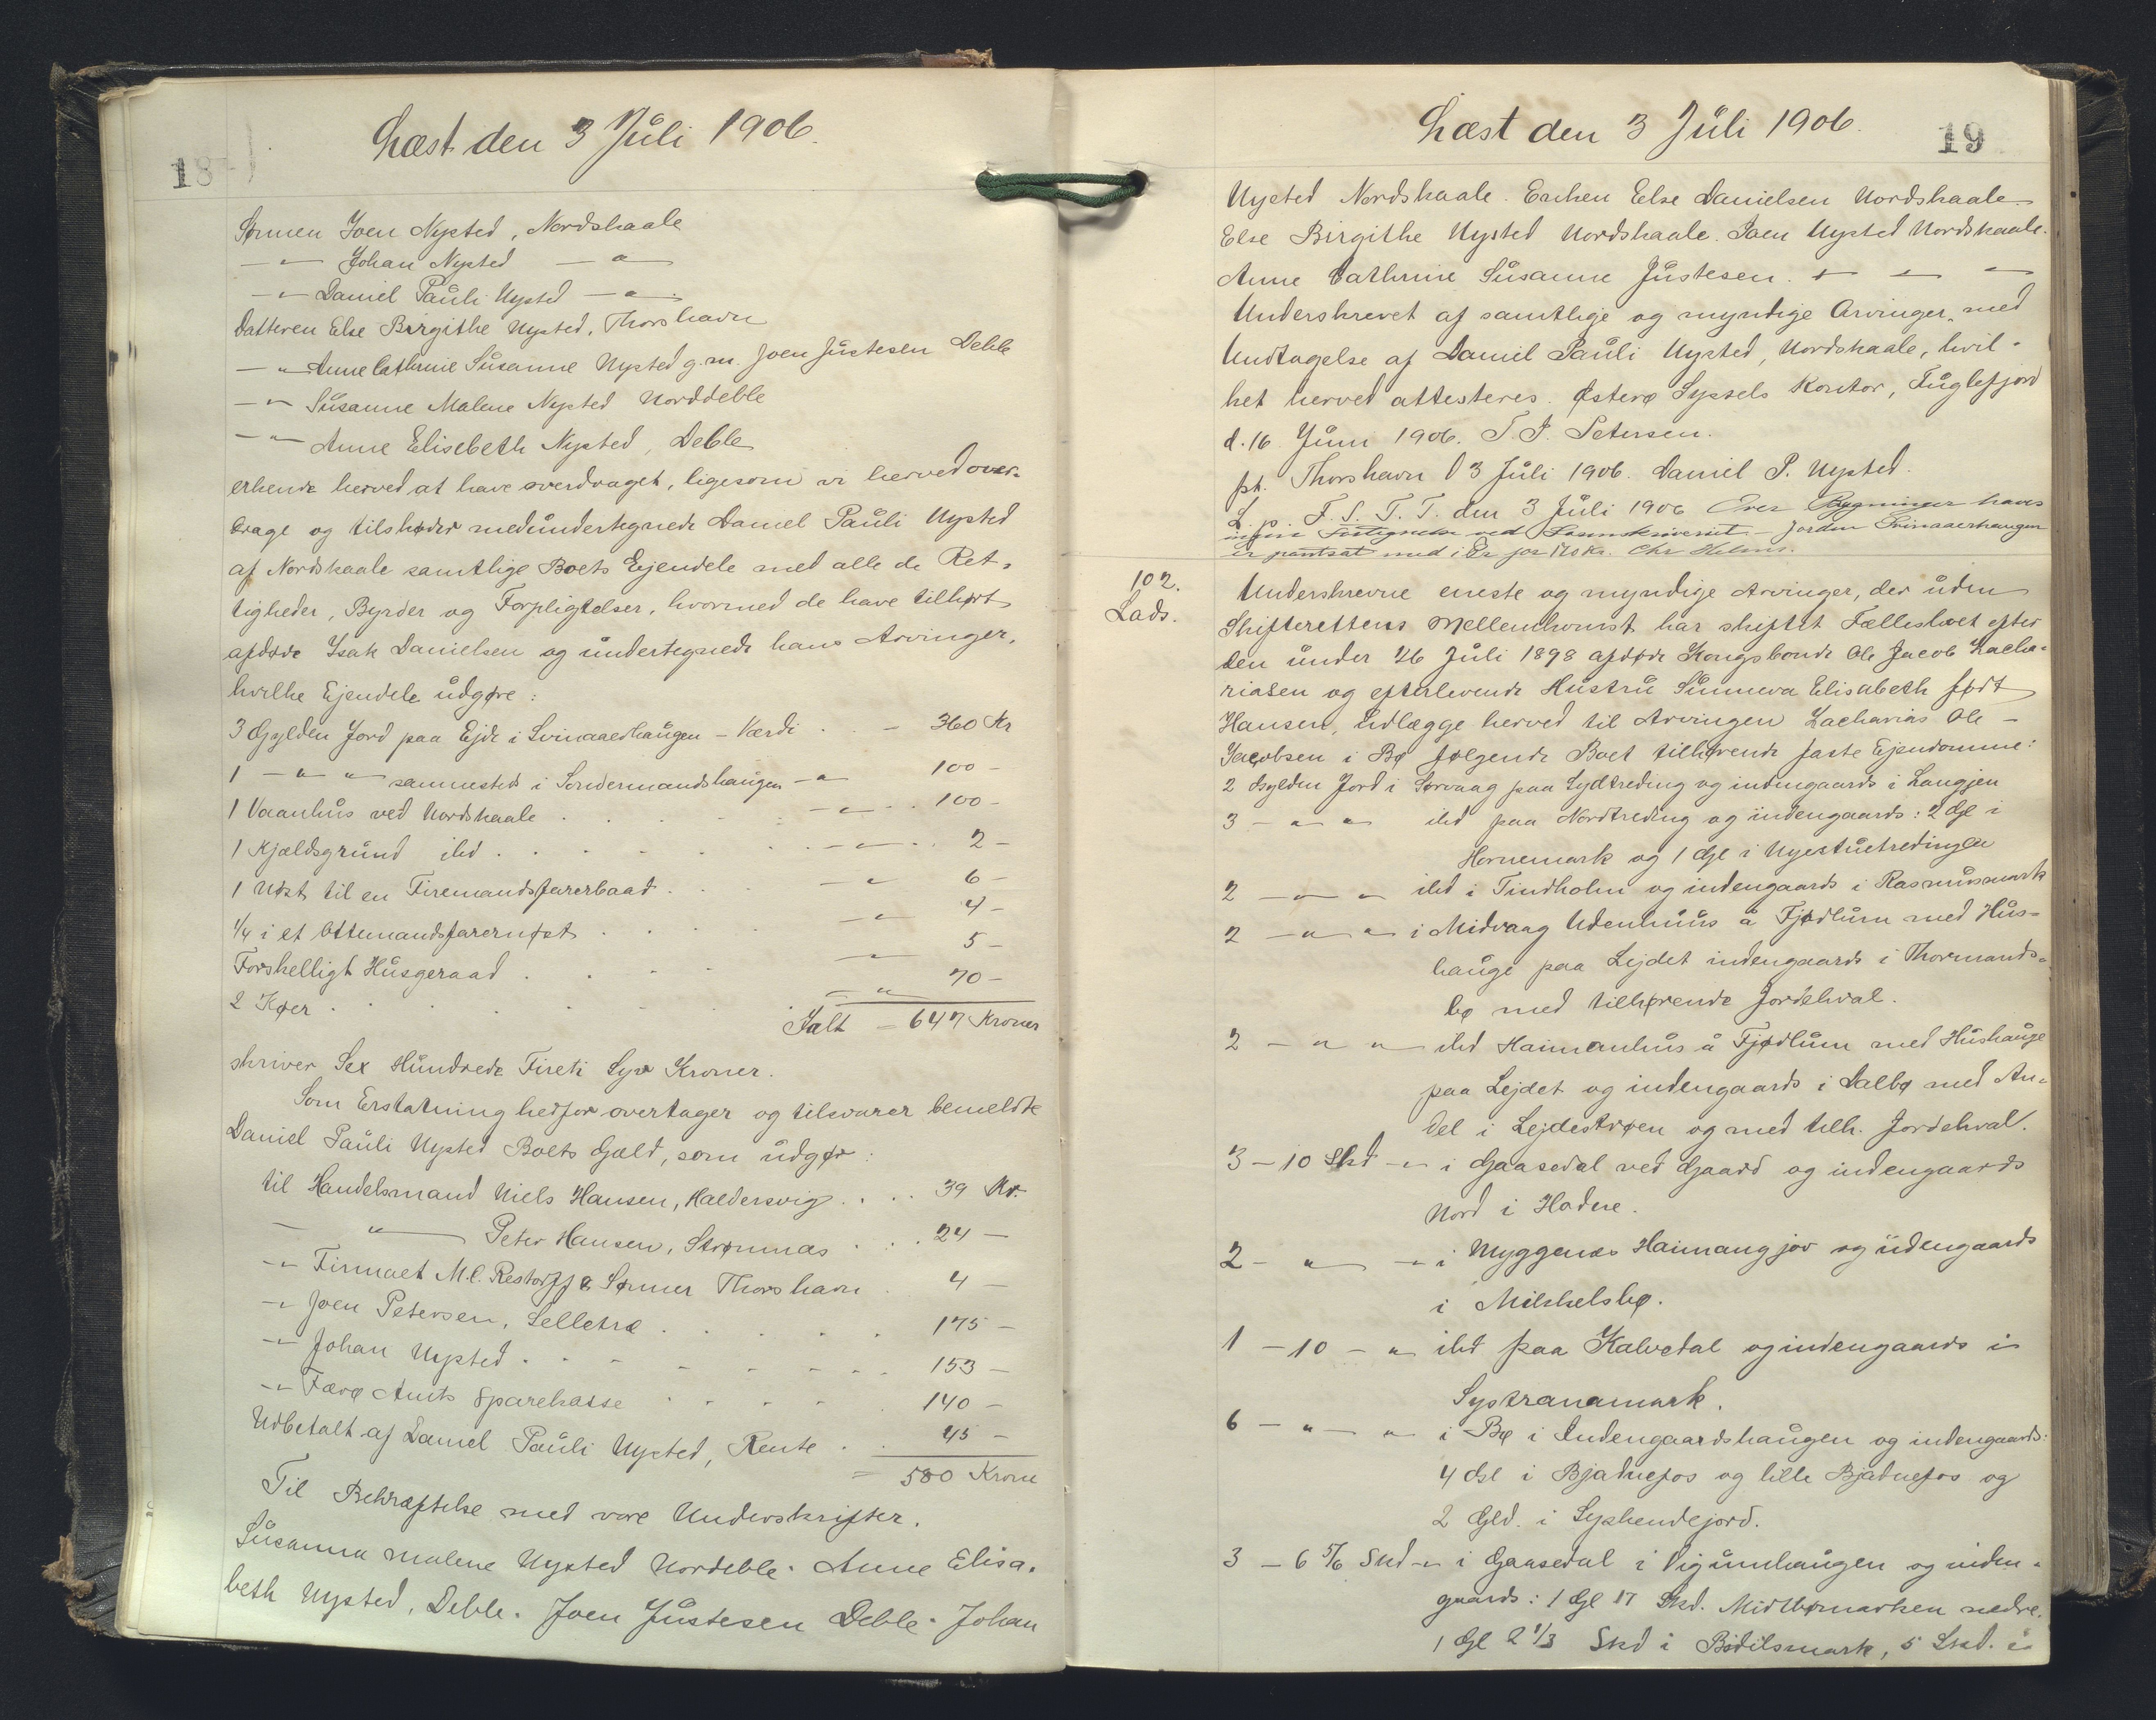 18
Læst den 3 Juli 1906.
Sønnen Joen Nysted, Nordskaale
—"— Johan Nysted —"—
—"— Daniel Pauli Nysted —"—
Datteren Else Birgithe Nysted, Thorshavn
—"— Anne Cathrine Susanne Nysted g. m. Joen Justesen Deble
—"— Susanne Malene Nysted Norddeble
—"— Anne Elisebeth Nysted, Deble
erkende herved at have overdraget, ligesom vi herved over-
drage og tilskøder medundertegnede Daniel Pauli Nysted
af Nordskaale samtlige Boets Ejendele med alle de Ret-
tigheder, Byrder og Forpligtelser, hvormed de have tilhørt
afdøde Isak Danielsen og undertegnede hans Arvinger,
hvilke Ejendele udgøre:
3 Gylden Jord paa Ejde i Svinaaerhaugen – Værdi . . – 360 Kr
1 —"—"— sammesteds i Sondermandshaugen —"— 100 –
1 Vaanhus ved Nordskaale . . . —"— . . 100 –
1 Kjældsgrund ibd . . . . —"— . . 2 –
1 Nøst til en Firemandsfarerbaad . . . —"— 6 –
1/4 i et Ottemandsfarernøst . . . . —"— 4 –
Forskelligt Husgeraad . . . . —"— 5 –
2 Køer . . . . . . —"— 70 –
Ialt = 647 Kroner
skriver Sex Hundrede Fireti Syv Kroner.
Som Erstatning hedfor overtager og tilsvarer bemeldte
Daniel Pauli Nysted Boets Gæld, som udgør:
til Handelsmand Niels Hansen, Haldersvig . . . 39 Kr.
— " — Peter Hansen, Strømnæs . . . 24 —
—"— Firmaet M. C. Restorff & Sønner Thorshavn . 4 —
—"— Joen Petersen, Selletræ . . . . . 175 —
—"— Johan Nysted . . . . . . . 153 —
—"— Færø Amts Sparekasse . . . . . 140 —
Udbetalt af Daniel Pauli Nysted, Rente . . 45 —
= 580 Krone
Til Bekræftelse med vore Underskrifter.
Susanna Malene Nysted Nordeble. Anne Elisa-
beth Nysted, Deble. Joen Justesen Deble. Johan
Læst den 3 Juli 1906.
19
Nysted Nordskaale. Enken Else Danielsen Nordskaale.
Else Birgithe Nysted Nordskaale. Joen Nysted Nordskaale.
Anne Cathrine Susanne Justesen. + — —
Underskrevet af samtlige og myndige Arvinger, med
Undtagelse af Daniel Pauli Nysted, Nordskaale, hvil-
ket herved attesteres. Østerø Syssels Kontor, Fuglefjord
d. 16 Juni 1906. T. J. Petersen.
pt. Thorshavn d 3 Juli 1906. Daniel P. Nysted.
L. p. F. S. T. T. den 3 Juli 1906 Over Bygninger haves
ingen Fortegnelse ved Sorenskriveriet – Jorden Svinaaerhaugen
er pantsat med i Er for 170 Kr. Chr Helms.
102.
Lads.
Underskrevne eneste og myndige Arvinger, der uden
Skifterettens Mellemkomst har skiftet Fællesboet efter
den under 26 Juli 1898 afdøde Kongsbonde Ole Jacob Zacha-
riasen og efterlevende Hustru Sunneva Elisabeth født
Hansen, udlægge herved til Arvingen Zacharias Ole –
Jacobsen i Bø følgende Boet tilhørende faste Ejendomme:
2 Gylden Jord i Sørvaag paa Sydtreding og indengaards i Langjen
3 —"—"— ibd paa Nordtreding og indengaards: 2 Gl i
Hornemark og 1 Gl i Nyestuetredingen
2 —"—"— ibd i Tindholm og indengaards i Rasmusmark
2 —"—"— i Midvaag Udenhuus å Fjødlum med Hus-
hauge paa Lejdet indengaards i Thormands-
bø med tilhørende Jordehval.
2 —"—"— ibd Haimanhus å Fjødlum med Hushauge
paa Lejdet og indengaards i Dalbø med An-
del i Lejdestrøen og med tilh. Jordehval.
3 – 10 Skd —"— i Gaasedal ved Gaard og indengaards
Nord i Hadne.
2 – " — —"— i Myggenæs Haimangjov og indengaards
i Mikkelsbø.
1 – 10 – " — ibd paa Kalvedal og indengaards i
Systranamark.
6 – " — " — i Bø i Indengaardshaugen og indengaards:
4 Gl i Bjadnefos og lille Bjadnefos og
2 Gld. i Syskendejord.
3 – 6 5/6 Skd —"— i Gaasedal i Vigumhaugen og inden-
gaards: 1 Gl 17 Skd. Midtbømarken nedre.
1 Gl 2 1/3 Skd i Bodilsmark, 5 Skd. i